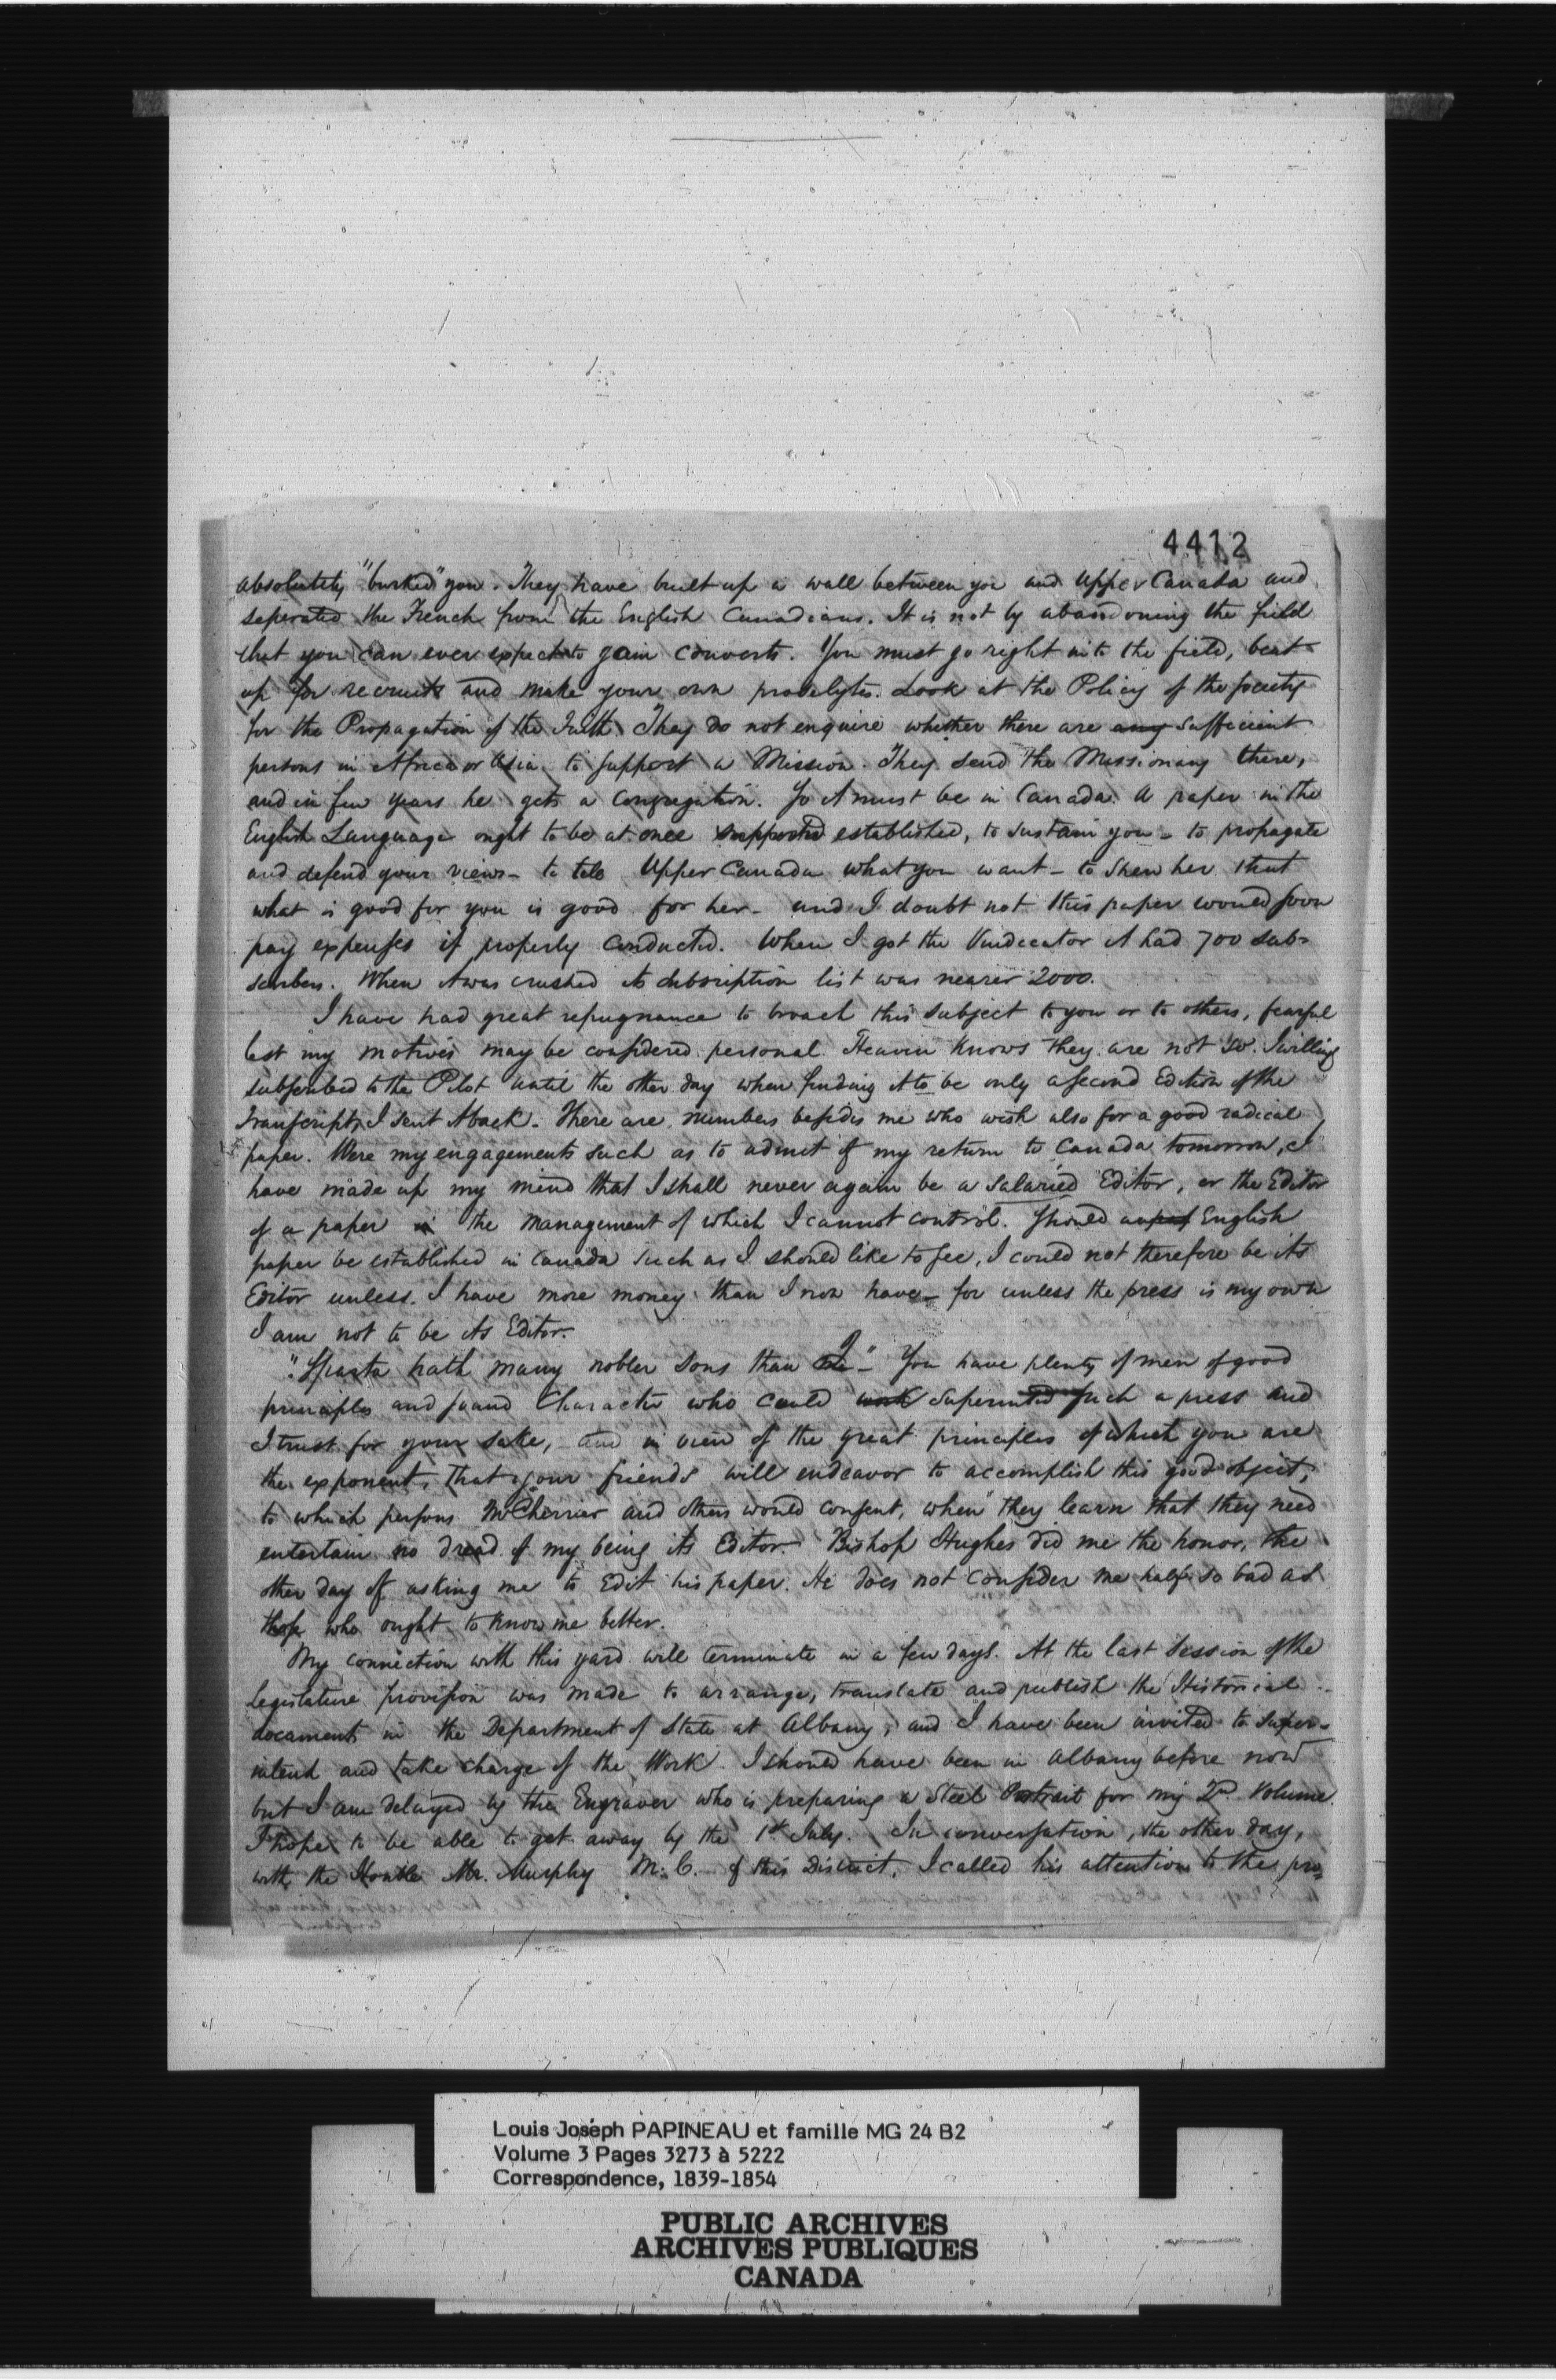 4412
absolutely "burked" you. They have built up a wall between you and Upper Canada and
seperated the French from the English Canadians. It is not by abandoning the field
that you can ever expect to gain converts. You must go right into the field, beat
up for recruits and make your own proselytes. Look at the Policy of the Society
for the Propagation of the Faith. They do not enquire whether there are any sufficient
persons in Africa or Asia to support a Mission. They send the Missionary there,
and in few years he gets a congregation. So it must be in Canada. A paper in the
English Language ought to be at once supported established, to sustain you - to propagate
and defend your views - to tell Upper Canada what you want - to shew her that
what is good for you is good for her - and I doubt not this paper would soon
pay expenses if properly conducted. When I got the Vindicator it had 700 sub-
scribers. When it was crushed its subscription list was nearer 2000.
I have had great repugnance to broach this subject to you or to others, fearful
lest my motives may be considered personal. Heaven knows they are not so. I willing
subscribed to the Pilot until the other day when finding it to be only a second Edition of the
Transcript, I sent it back. There are numbers besides me who wish also for a good radical
paper. Were my engagements such as to admit of my return to Canada tomorrow, I
have made up my mind that I shall never again be a salaried Editor, or the Editor
of a paper in the management of which I cannot control. Should English
paper be established in Canada such as I should like to see, I could not therefore be its
Editor unless I have more money than I now have - for unless the press is my own
I am not to be its Editor.
"Sparta hath many nobler sons than I" - You have plenty of men of good
principles and sound Character who could work superintend such a press and
I trust for your sake, - and in view of the great principles of which you are
the exponent, that your friends will endeavor to accomplish this good object,
to which persons Mr Cherrier and others would consent, when they learn that they need
entertain no dread of my being its Editor. Bishop Hughes did me the honor, the
other day of asking me to Edit his paper. He does not consider me half so bad as
those who ought to know me better.
My connection with this yard will terminate in a few days. At the last Session of the
Legislature provision was made to arrange, translate and publish the Historical
documents in the Department of State at Albany, and I have been invited to super-
intend and take charge of the Work. I should have been in Albany before now
but I am delayed by the Engraver who is preparing a Steel Portrait for my 2d Volume.
I hope to be able to get away by the 1st July. In conversation, the other day,
with the Honble Mr. Murphy M. C. of this District, I called his attention to the pro-
Louis Joseph PAPINEAU et famille MG 24 B2
Volume 3 Pages 3273 à 5222
Correspondence, 1839-1854
PUBLIC ARCHIVES
ARCHIVES PUBLIQUES
CANADA